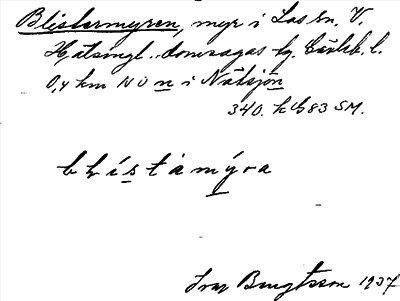 Blistermyren, myr i Los sn. V.
Hälsingl. domsagas tg. Gävleb. l.
0,4 km NO n i Nätsjön
340. kb 83 SM.
blístamýra
Ivar Bengtsson 1937